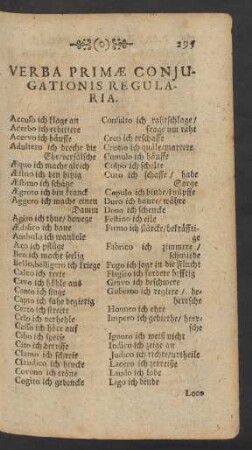 (o) 295
VERBA PRIMÆ CONJU-
GATIONIS REGULA-
RIA.
Accuso ich klage an
Acerbo ich erbittere
Acervo ich häuffe
Adultero ich breche die
Ehe/verfälsche
Æquo ich mache gleich
Æstuo ich bin hitzig
Æstimo ich schätze
Ægroto ich bin kranck
Aggero ich mache einen
Damm
Agito ich thue/ bewege
Ædifico ich baue
Ambulo ich wandele
Aro ich pflüge
Beo ich mache seelig
Bello, belligero ich kriege
Calco ich trete
Cavo ich höhle aus
Canto ich singe
Capto ich fahe begierig
Certo ich streite
Celo ich verhehle
Cesso ich höre auf
Cibo ich speise
Cito ich beruffe
Clamo ich schreie
Claudico ich hincke
Corono ich cröne
Cogito ich gedencke
Consulto ich rahtschlage/
frage um raht
Creo ich erschaffe
Crucio ich quäle/martere
Cumulo ich häuffe
Culpo ich schelte
Curo ich schaffe/ habe
Sorge
Copulo ich binde/knüpffe
Duro ich daure/ währe
Dono ich schencke
Festino ich eile
Firmo ich stärcke/bekräffti-
ge
Fabrico ich zimmere/
schmiede
Fugo ich jage in die flucht
Flagito ich fordere hefftig
Gravo ich beschwere
Guberno ich regiere/ be-
herrsche
Honoro ich ehre
Impero ich gebiethe/ herr-
sche
Ignoro ich weiß nicht
Indico ich zeige an
Judico ich richte/urtheile
Lacero ich zerreiße
Laudo ich lobe
Ligo ich binde
Loco